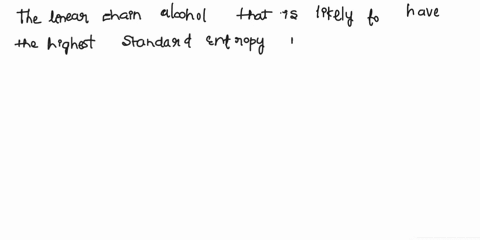 The linear chain alcohol that is likely to have
the highest standard entropy